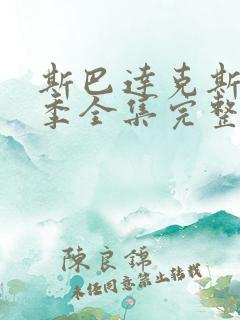 斯巴達克斯
季全集完整
陳良錦
未經同意禁止轉載